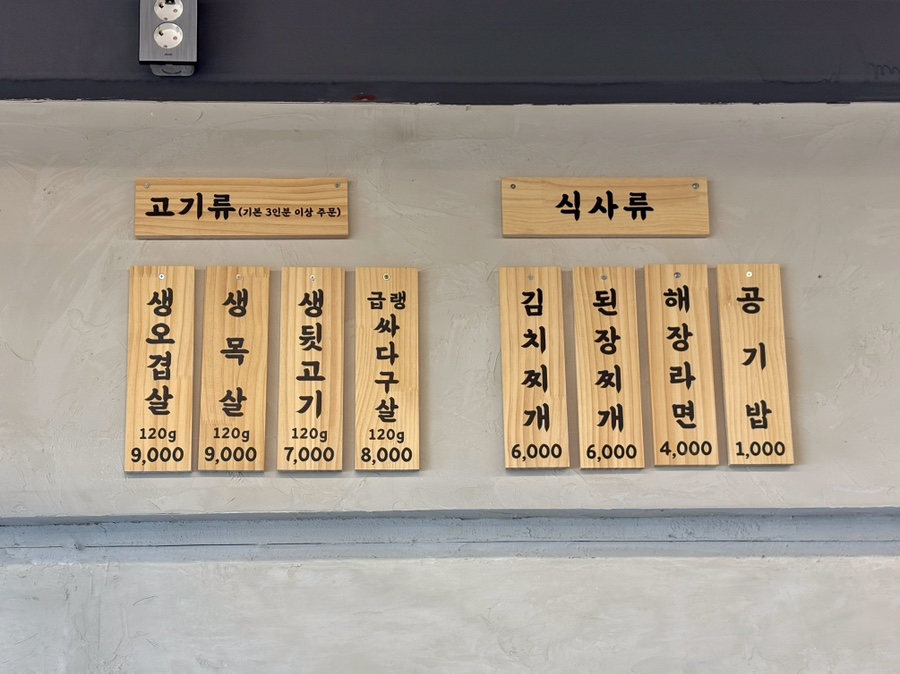 고기류(기본 3인분 이상 주문)
생오겹살
120g
9,000
생목살
120g
9,000
생뒷고기
120g
7,000
급랭
싸다구살
120g
8,000
식사류
김치찌개
6,000
된장찌개
6,000
해장라면
4,000
공기밥
1,000